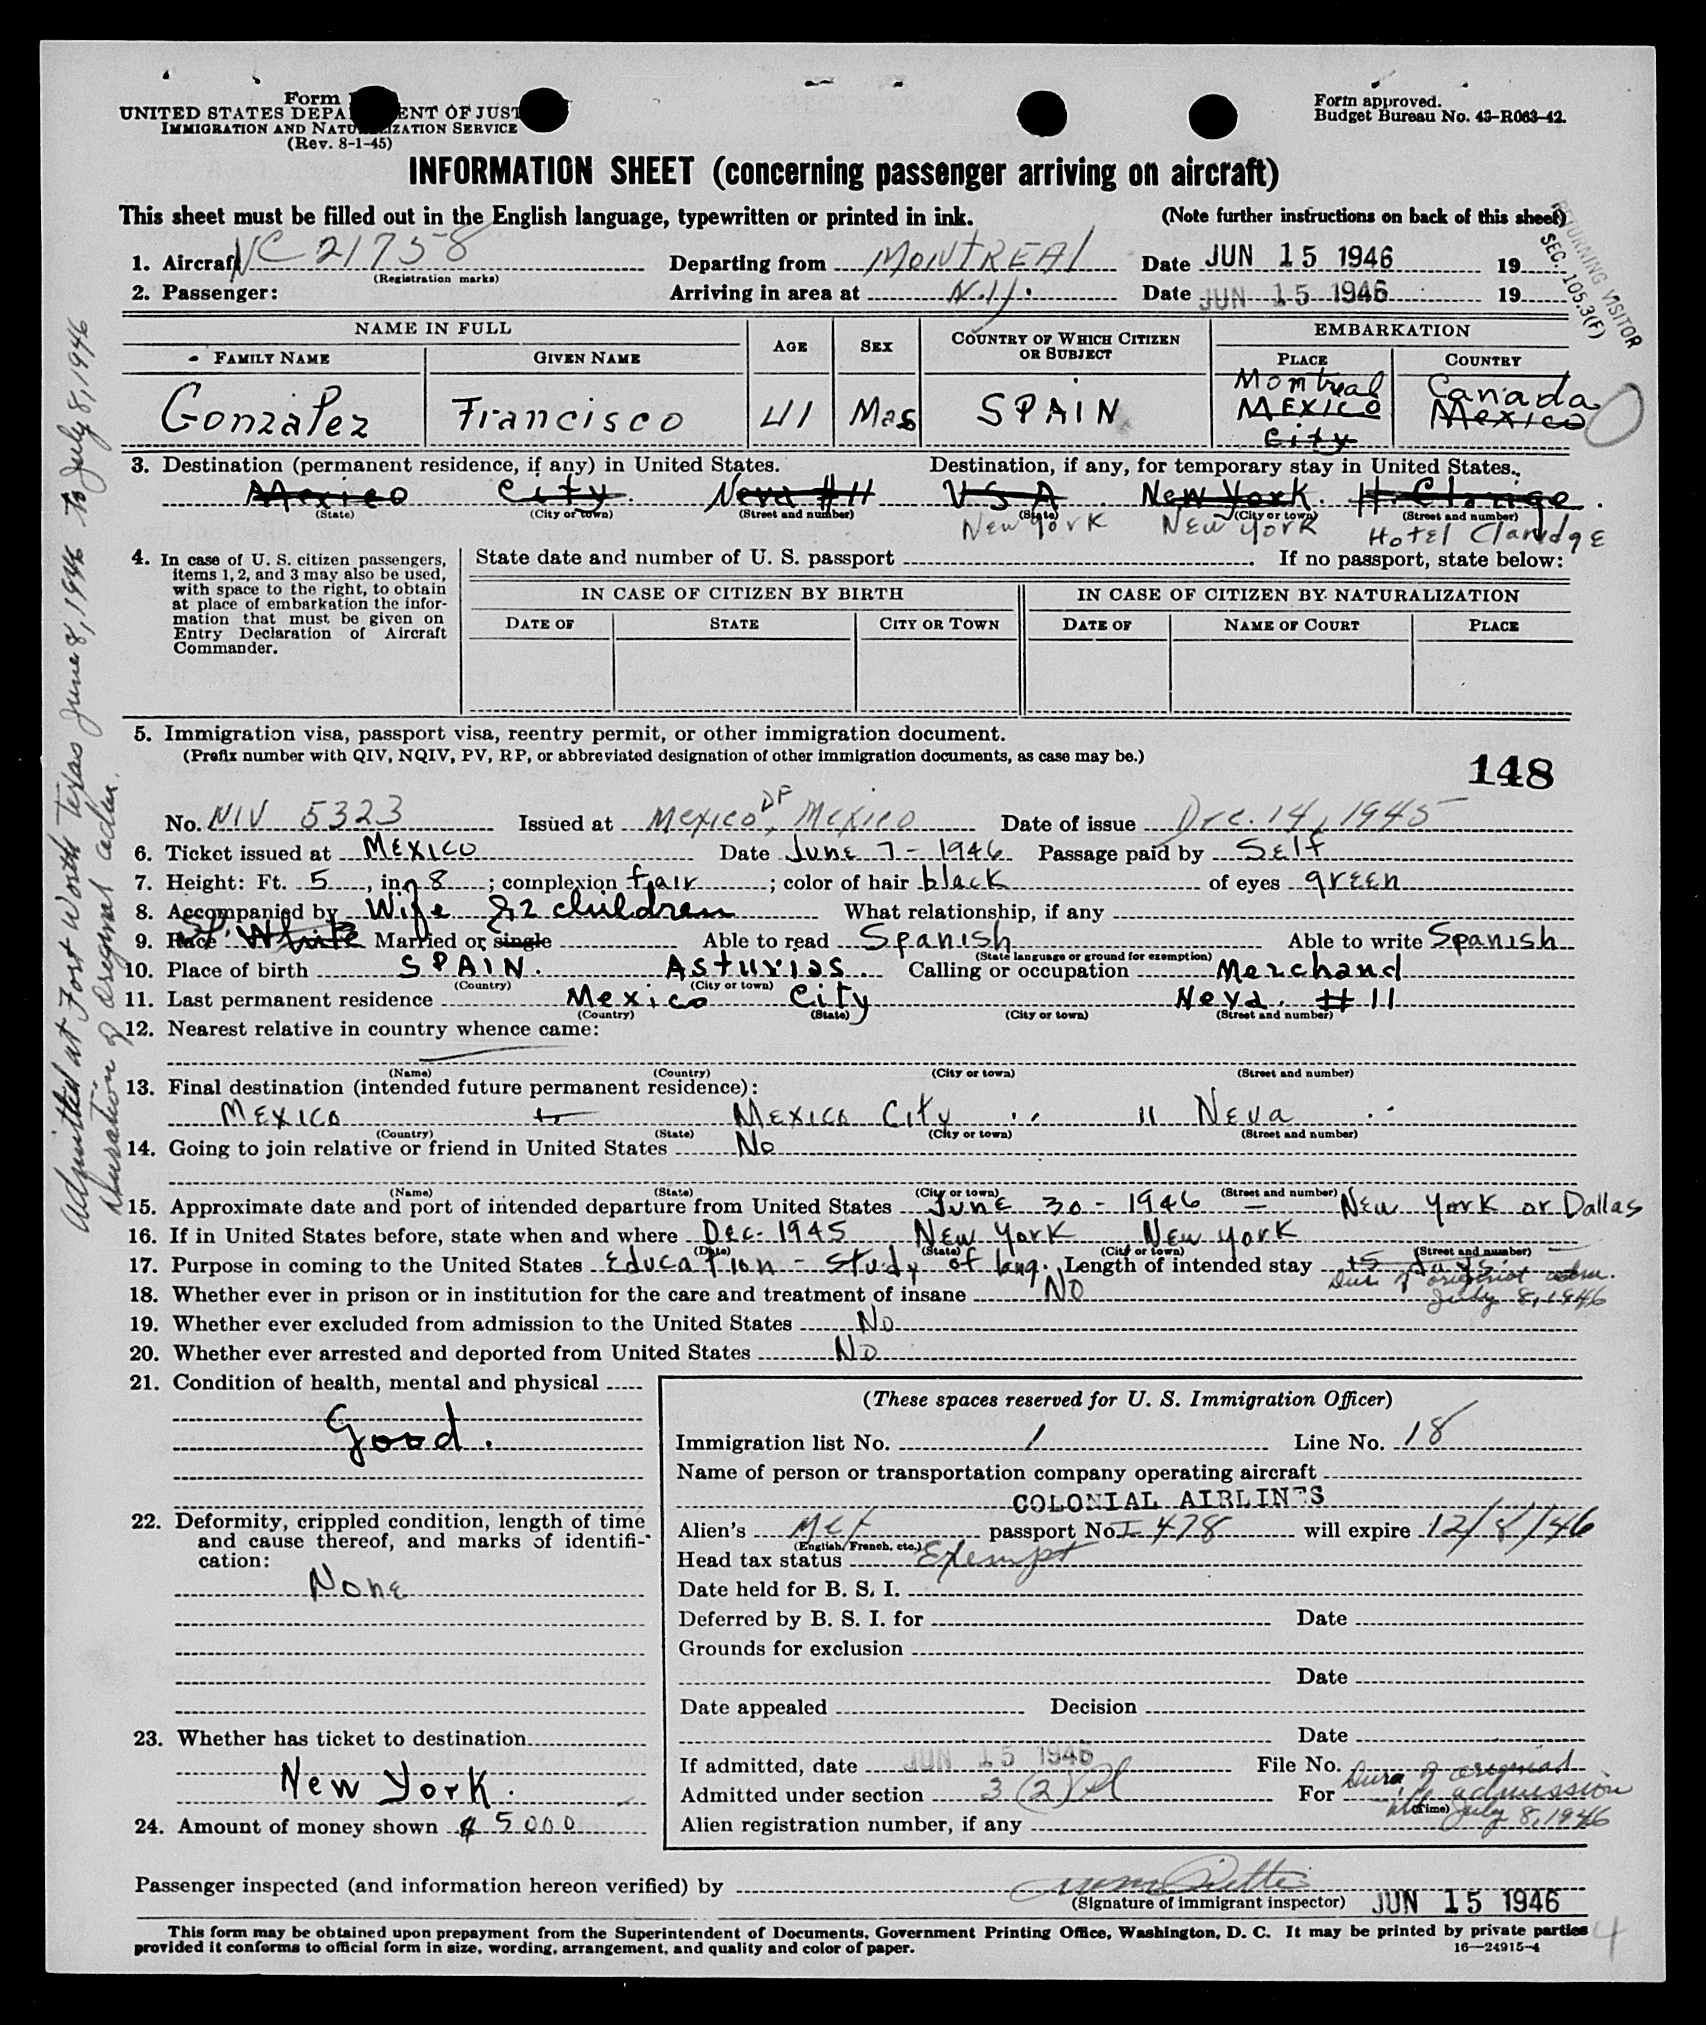 Form
UNITED STATES DEPA ENT OF JUST
IMMIGRATION AND NATU IZATION SERVICE
(Rev. 8-1-45)
Form approved.
Budget Bureau No. 43-R063-42.
INFORMATION SHEET (concerning passenger arriving on aircraft)
This sheet must be filled out in the English language, typewritten or printed in ink. (Note further instructions on back of this sheet)
RETURNING VISITOR
SEC. 105.3(F)
1. Aircraft NC 21758 Departing from MONTREAL Date JUN 15 1946 19
(Registration marks)
2. Passenger: Arriving in area at N.Y. Date JUN 15 1946 19
NAME IN FULL AGE SEX COUNTRY OF WHICH CITIZEN OR SUBJECT EMBARKATION
FAMILY NAME GIVEN NAME PLACE COUNTRY
Montreal Canada
Gonzalez Francisco 41 Mas SPAIN MEXICO City Mexico
3. Destination (permanent residence, if any) in United States. Destination, if any, for temporary stay in United States.
Mexico City. Neva #11 USA New York. H. Clarige.
(State) (City or town) (Street and number) (State) (City or town) (Street and number)
New York New York Hotel Claridge
4. In case of U. S. citizen passengers, items 1, 2, and 3 may also be used, with space to the right, to obtain at place of embarkation the information that must be given on Entry Declaration of Aircraft Commander.
State date and number of U. S. passport If no passport, state below:
IN CASE OF CITIZEN BY BIRTH IN CASE OF CITIZEN BY NATURALIZATION
DATE OF STATE CITY OR TOWN DATE OF NAME OF COURT PLACE
5. Immigration visa, passport visa, reentry permit, or other immigration document.
(Prefix number with QIV, NQIV, PV, RP, or abbreviated designation of other immigration documents, as case may be.)
148
No. NIV 5323 Issued at Mexico DF, Mexico Date of issue Dec. 14, 1945
6. Ticket issued at MEXICO Date June 7 - 1946 Passage paid by Self
7. Height: Ft. 5, in. 8; complexion fair; color of hair black of eyes green
8. Accompanied by Wife & 2 children What relationship, if any
9. Race White Married or single Able to read Spanish Able to write Spanish
(State language or ground for exemption)
10. Place of birth SPAIN. Asturias Calling or occupation Merchand
(Country) (City or town)
11. Last permanent residence Mexico City Neva. #11
(Country) (State) (City or town) (Street and number)
12. Nearest relative in country whence came:
(Name) (Country) (City or town) (Street and number)
13. Final destination (intended future permanent residence):
MEXICO MEXICO City 11 Neva
(Country) (State) (City or town) (Street and number)
14. Going to join relative or friend in United States No
(Name) (State) (City or town) (Street and number)
15. Approximate date and port of intended departure from United States June 30 - 1946 - New York or Dallas
16. If in United States before, state when and where Dec. 1945 New York New York
(Date) (State) (City or town) (Street and number)
17. Purpose in coming to the United States Education - Study of lang. Length of intended stay 15 days
Dur. of original adm.
July 8, 1946
18. Whether ever in prison or in institution for the care and treatment of insane No
19. Whether ever excluded from admission to the United States No
20. Whether ever arrested and deported from United States No
21. Condition of health, mental and physical
Good.
22. Deformity, crippled condition, length of time and cause thereof, and marks of identification:
None
23. Whether has ticket to destination
New York.
24. Amount of money shown $ 5000
(These spaces reserved for U. S. Immigration Officer)
Immigration list No. 1 Line No. 18
Name of person or transportation company operating aircraft
COLONIAL AIRLINES
Alien's Mex passport No. I 478 will expire 12/8/46
(English, French, etc.)
Head tax status Exempt
Date held for B. S. I.
Deferred by B. S. I. for Date
Grounds for exclusion
Date
Date appealed Decision
Date
If admitted, date JUN 15 1946 File No.
Admitted under section 3(2) For Dura of original admission
(Time)
July 8, 1946
Alien registration number, if any
Passenger inspected (and information hereon verified) by
(Signature of immigrant inspector) JUN 15 1946
This form may be obtained upon prepayment from the Superintendent of Documents, Government Printing Office, Washington, D. C. It may be printed by private parties
provided it conforms to official form in size, wording, arrangement, and quality and color of paper. 16—24915-4
4
Admitted at Fort Worth Texas June 8, 1946 to July 8, 1946
Duration of original adm.